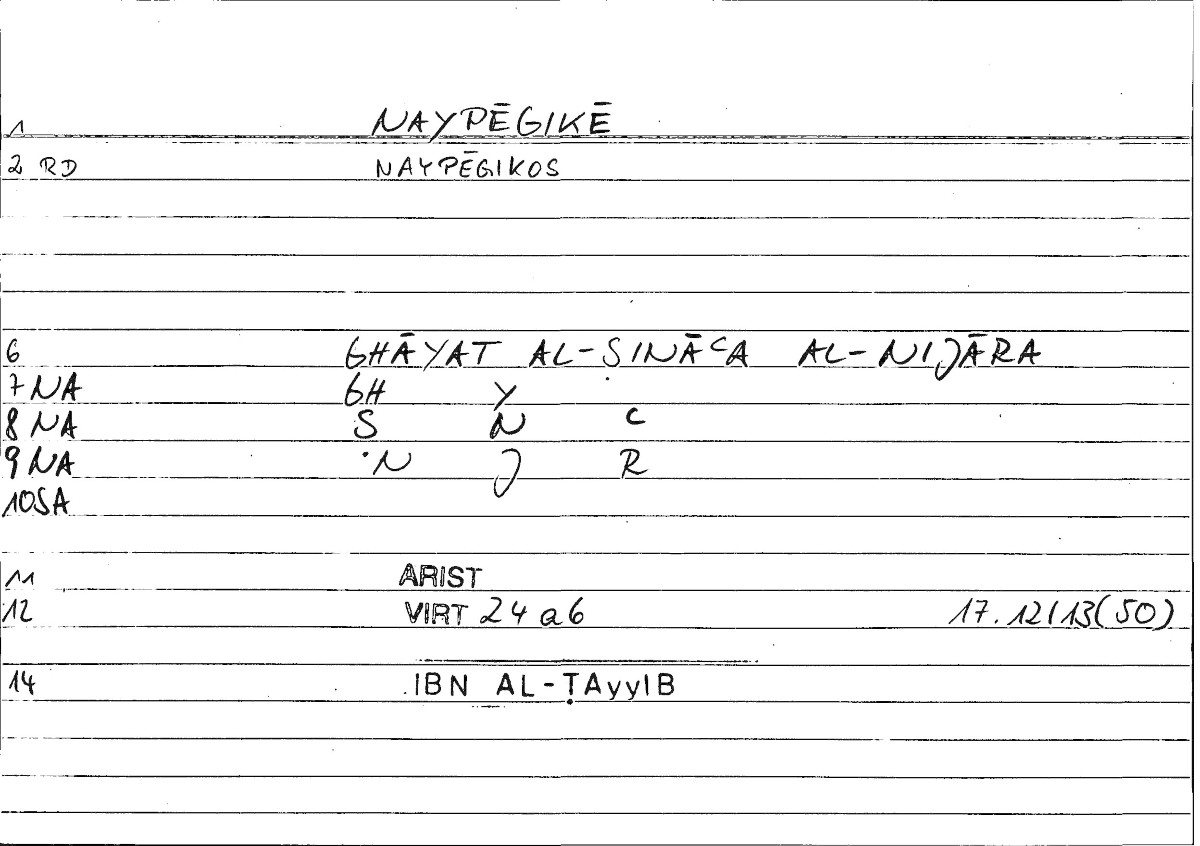 1 NAYPĒGIKĒ
2 RD NAYPĒGIKOS
6 GHĀYAT AL-ṢINĀCA AL-NIJĀRA
7 NA GH Y
8 NA S N C
9 NA N J R
10SA
11 ARIST
12 VIRT 24 a6 17.12/13(50)
14 IBN AL-ṬAyyIB